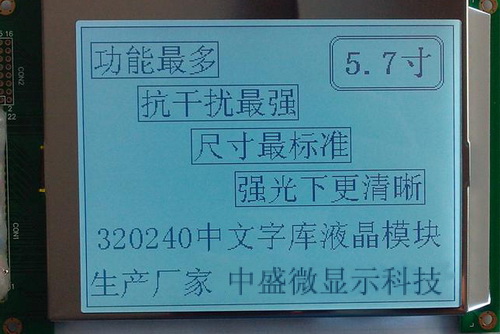 功能最多
5.7寸
抗干扰最强
尺寸最标准
强光下更清晰
320240中文字库液晶模块
生产厂家 中盛微显示科技
CON2
CON1